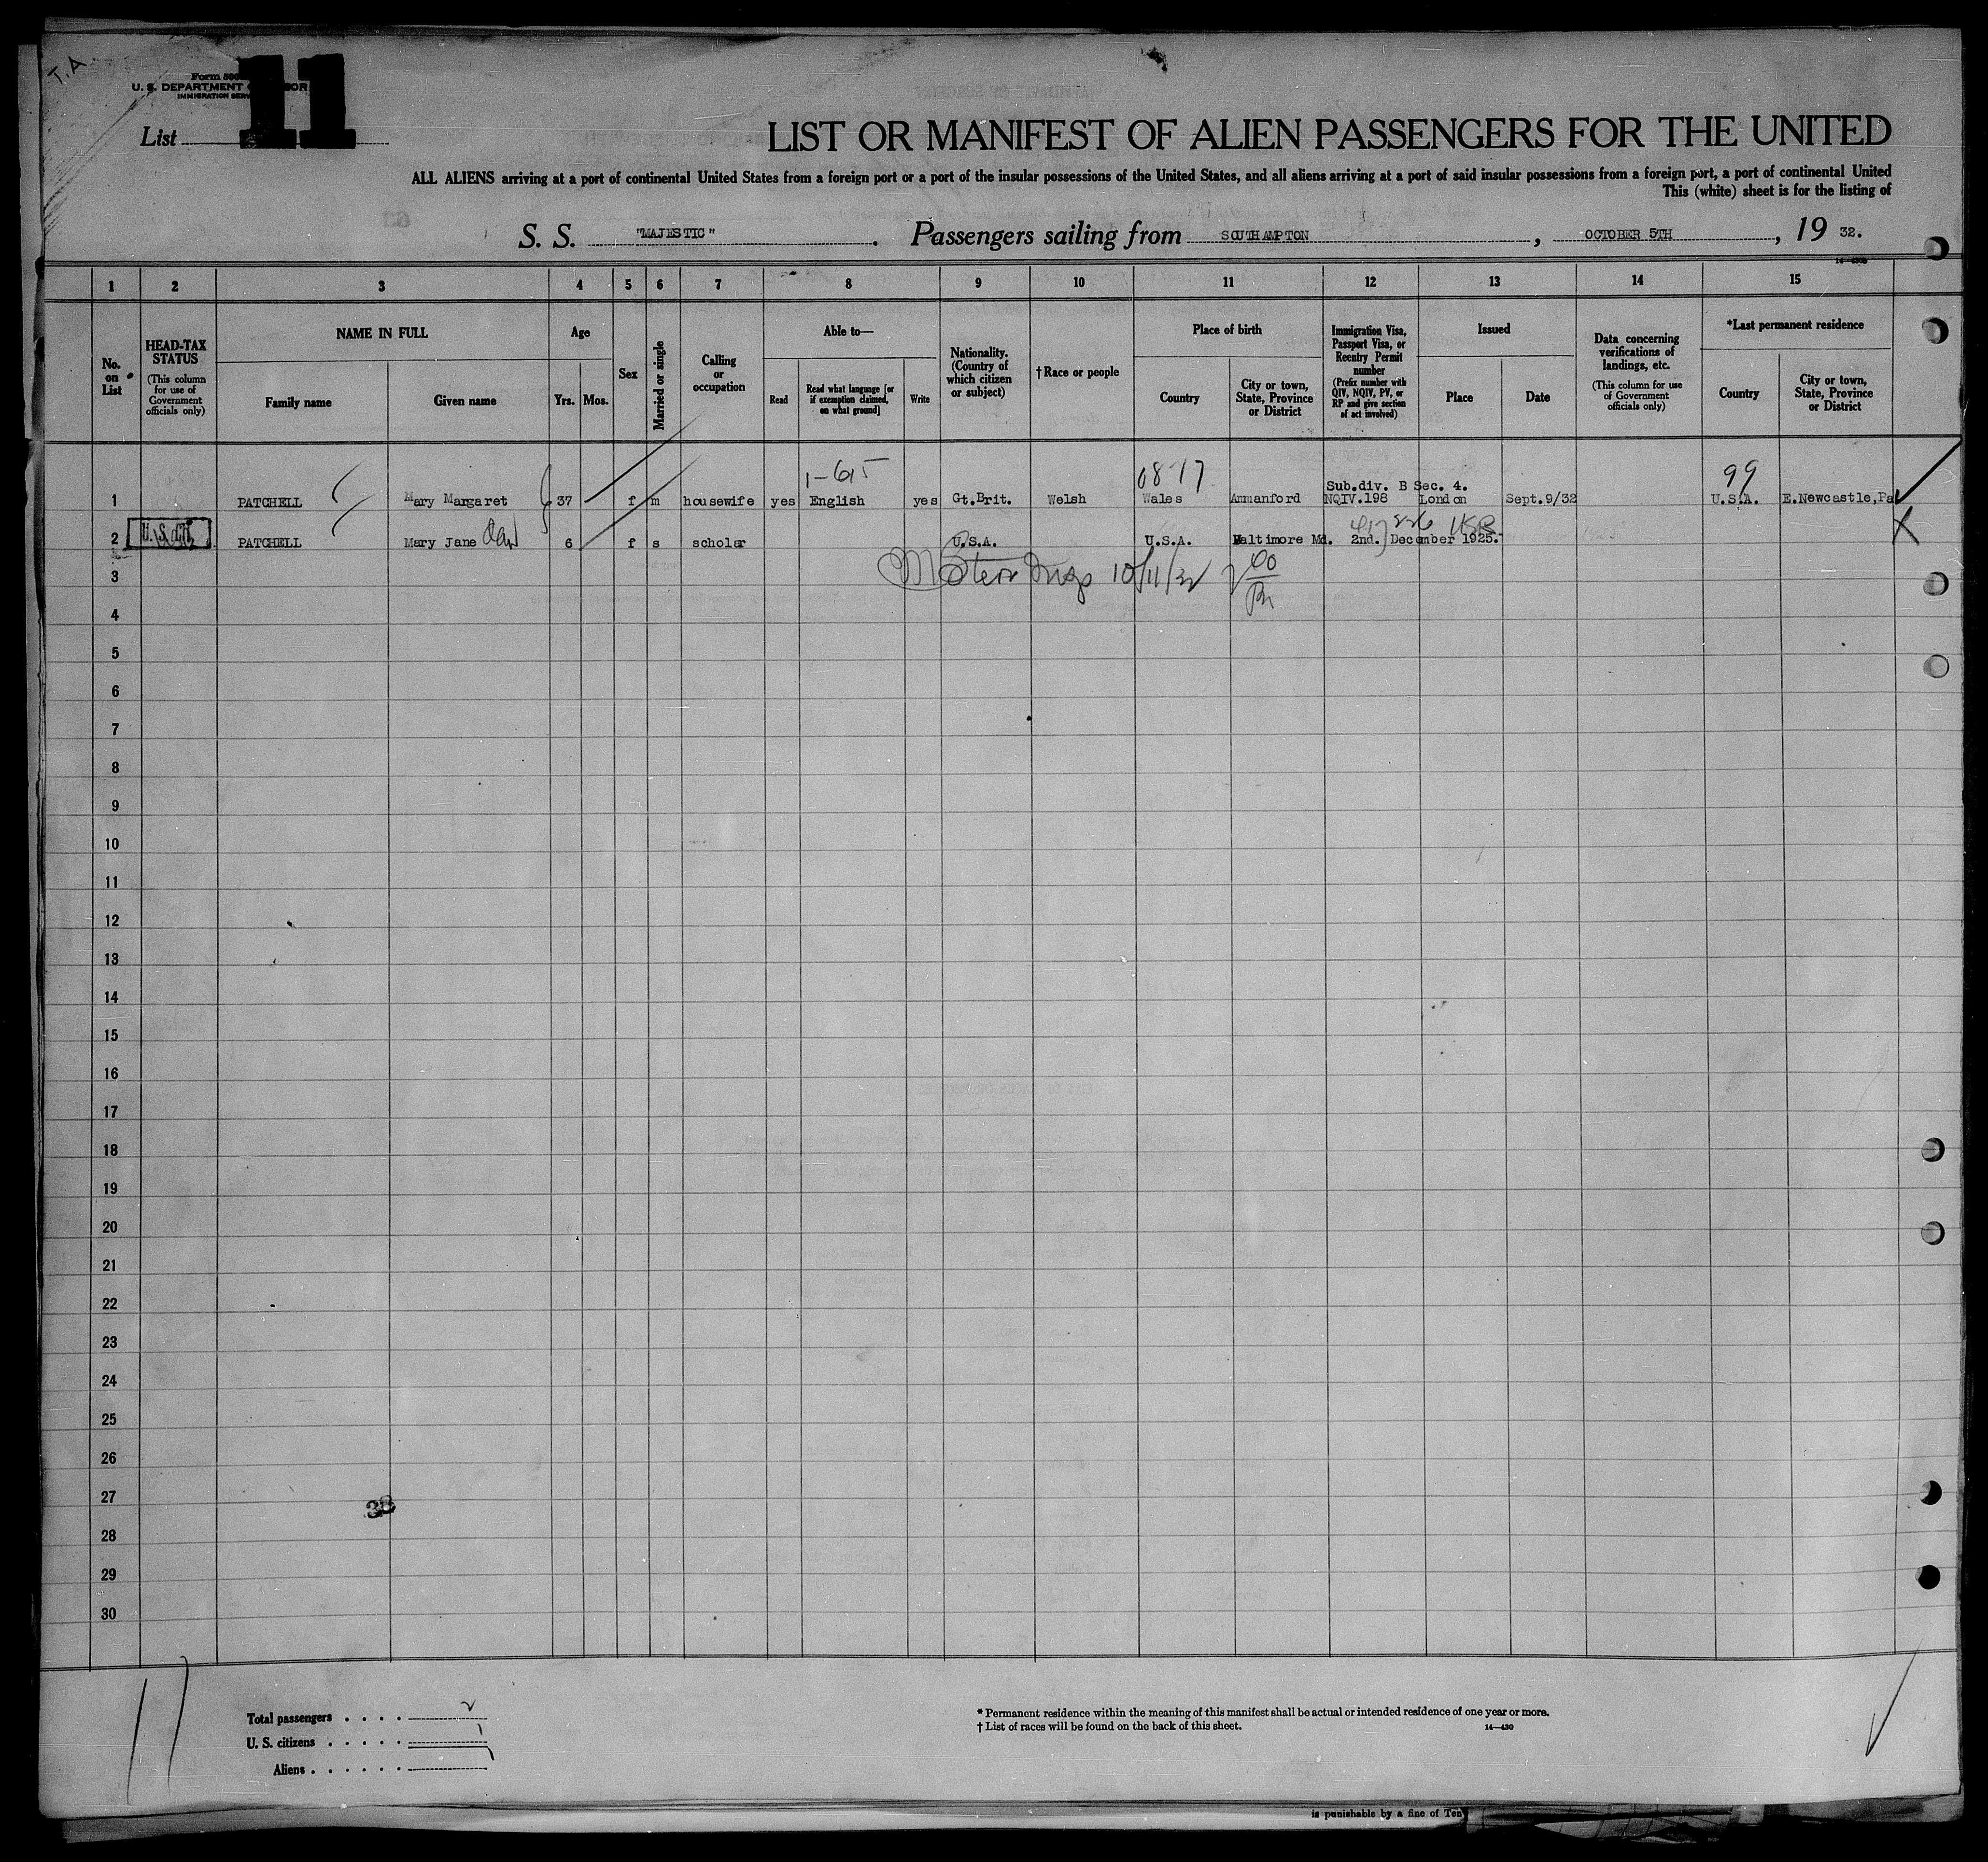 T.A
Form 500
U. S. DEPARTMENT OF LABOR
IMMIGRATION SERV
List 11
LIST OR MANIFEST OF ALIEN PASSENGERS FOR THE UNITED
ALL ALIENS arriving at a port of continental United States from a foreign port or a port of the insular possessions of the United States, and all aliens arriving at a port of said insular possessions from a foreign port, a port of continental United
This (white) sheet is for the listing of
S. S. "MAJESTIC". Passengers sailing from SOUTHAMPTON, OCTOBER 5TH, 19 32.
1 2 3 4 5 6 7 8 9 10 11 12 13 14 15
No. on List
HEAD-TAX STATUS
(This column for use of Government officials only)
NAME IN FULL
Family name
Given name
Age
Yrs. Mos.
Sex
Married or single
Calling or occupation
Able to—
Read
Read what language [or if exemption claimed, on what ground]
Write
Nationality. (Country of which citizen or subject)
†Race or people
Place of birth
Country
City or town, State, Province or District
Immigration Visa, Passport Visa, or Reentry Permit number
(Prefix number with QIV, NQIV, PV, or RP and give section of act involved)
Issued
Place
Date
Data concerning verifications of landings, etc.
(This column for use of Government officials only)
*Last permanent residence
Country
City or town, State, Province or District
1-615 08-17 99
Sub.div. B Sec. 4.
1 PATCHELL Mary Margaret 37 f m housewife yes English yes Gt.Brit. Welsh Wales Ammanford NQIV.198 London Sept.9/32 U.S.A. E.Newcastle,Pa
2 PATCHELL Mary Jane 6 f s scholar U.S.A. U.S.A. Baltimore Md. 2nd. December 1925.
3 10/11/32
4
5
6
7
8
9
10
11
12
13
14
15
16
17
18
19
20
21
22
23
24
25
26
27
28
29
30
11
Total passengers . . . . 2
U. S. citizens . . . . . 1
Aliens . . . . . . 1
* Permanent residence within the meaning of this manifest shall be actual or intended residence of one year or more.
† List of races will be found on the back of this sheet.
14—430
is punishable by a fine of Ten